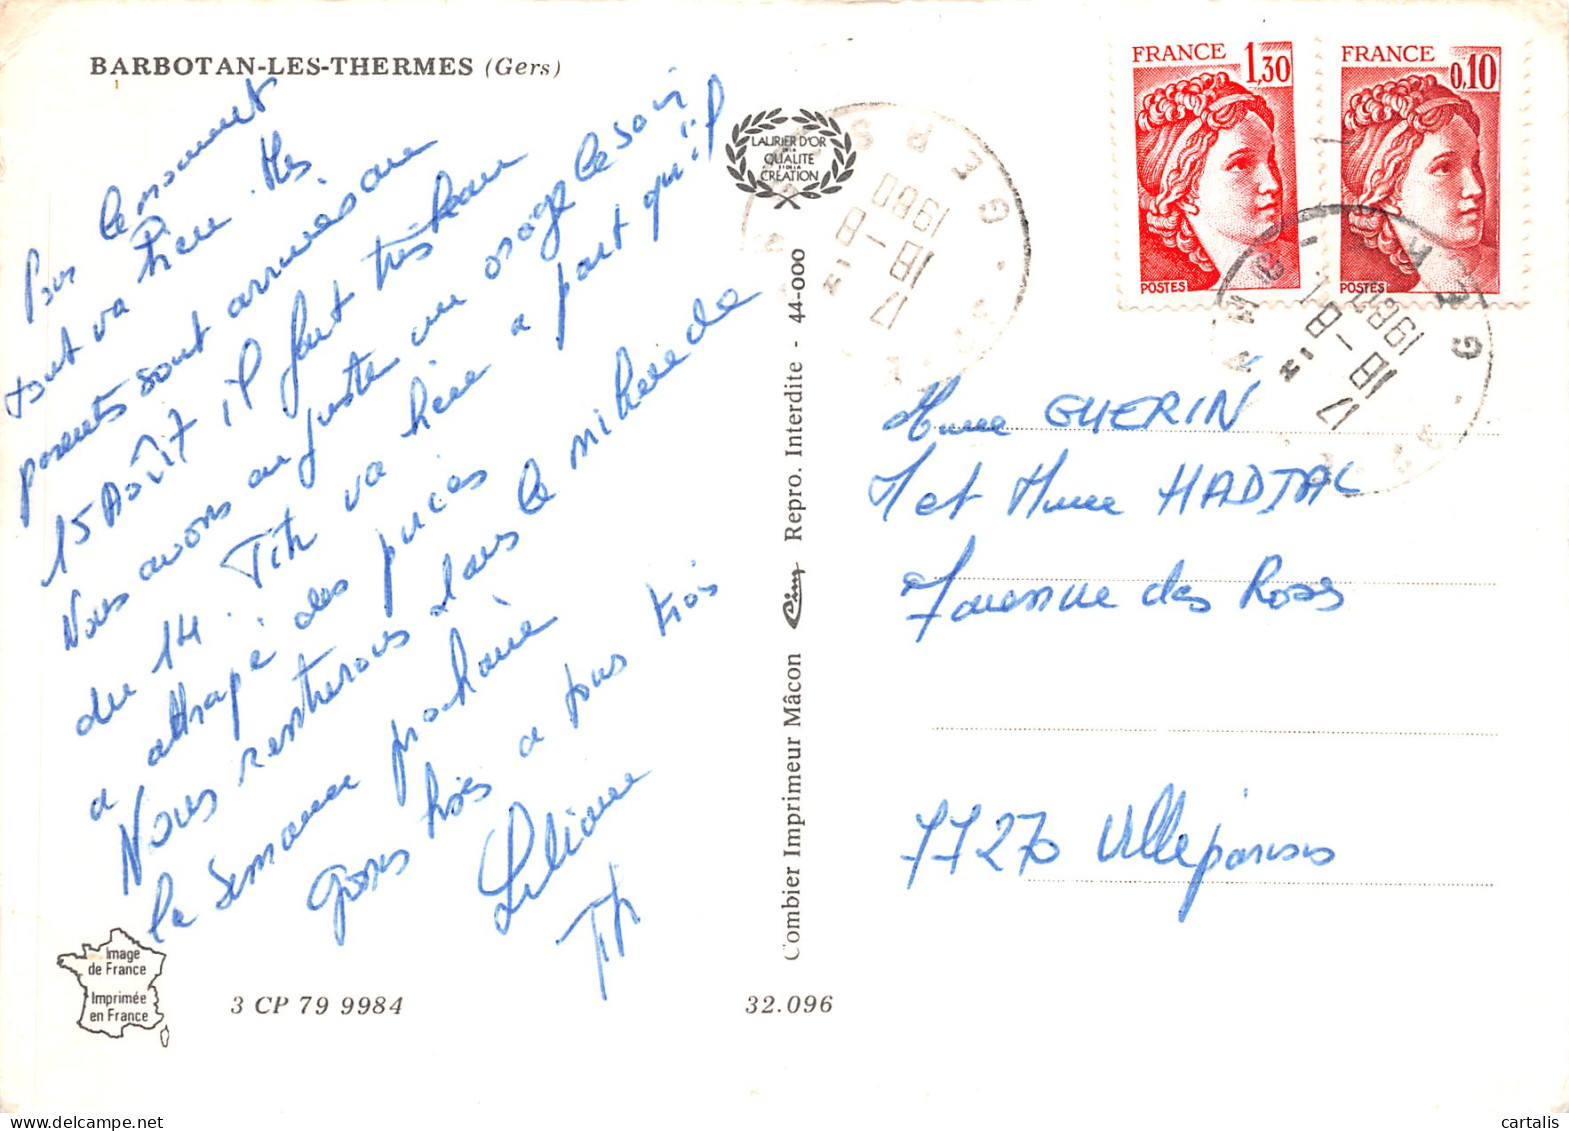 BARBOTAN-LES-THERMES (Gers)
Pour le moment
tout va bien. Mes
parents sont arrivés au
15 Août, il fait très beau
Nous avons eu juste un orage le soir
du 14. Tih va bien a part qu'il
a attrapé des puces
Nous rentrerons dans le milieu de
la semaine prochaine
Grosses bises a tous trois
Liliane
Tih
Image
de France
Imprimée
en France
3 CP 79 9984
32.096
Combier Imprimeur Mâcon Cim Repro. Interdite - 44-000
LAURIER D'OR
DE LA
QUALITE
ET DE LA
CREATION
FRANCE 1,30
POSTES
FRANCE 0,10
POSTES
GERS
17 H
18-8
1980
GERS
17 H
18-8
1980
Mme GUERIN
M et Mme HADJAL
7 avenue des Roses
77270 Villeparisis
cartalis